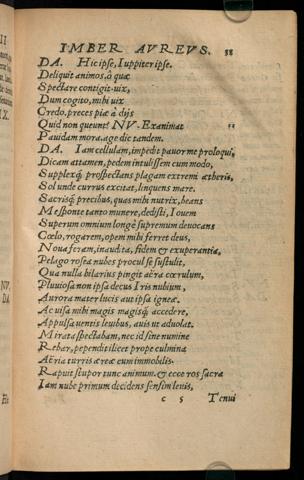 IMBER AVREVS. 38
DA. Hic ipse, Iuppiter ipse.
Deliquit animos, à quæ
Spectare contigit uix,
Dum cogito, mihi uix
Credo, preces piæ à dijs
Quid non queunt? NV. Exanimat
Pauidam mora, age dic tandem.
DA. Iam cellulam, impedit pauor me proloqui,
Dicam attamen, pedem intulissem cum modo,
Supplexq́; prospectans plagam extremi ætheris,
Sol unde currus excitat, linquens mare.
Sacrisq́; precibus, quas mihi nutrix, heans
Me sponte tanto munere, dedisti, Iouem
Superum omnium longè supremum deuocans
Cœlo, rogarem, opem mihi ferret deus,
Noua feram, inaudita, fidem & exuperantia,
Pelago rosea nubes procul se sustulit,
Qua nulla hilarius pingit aëra cœrulum,
Pluuiosa non ipsa decus Iris nubium,
Aurora mater lucis aut ipsa igneæ.
Ac uisa mihi magis magisq́; accedere,
Appulsa uentis leuibus, auis ut aduolat.
Mirata spectabam, nec id sine numine
Rebar, pependit ilicet prope culmina
Aëria turris æreæ eum immobilis.
Rapuit stupor tunc animum. & ecce ros sacra
Iam nube primum decidens sensim leuis,
c 5 Tenui
NV
DA